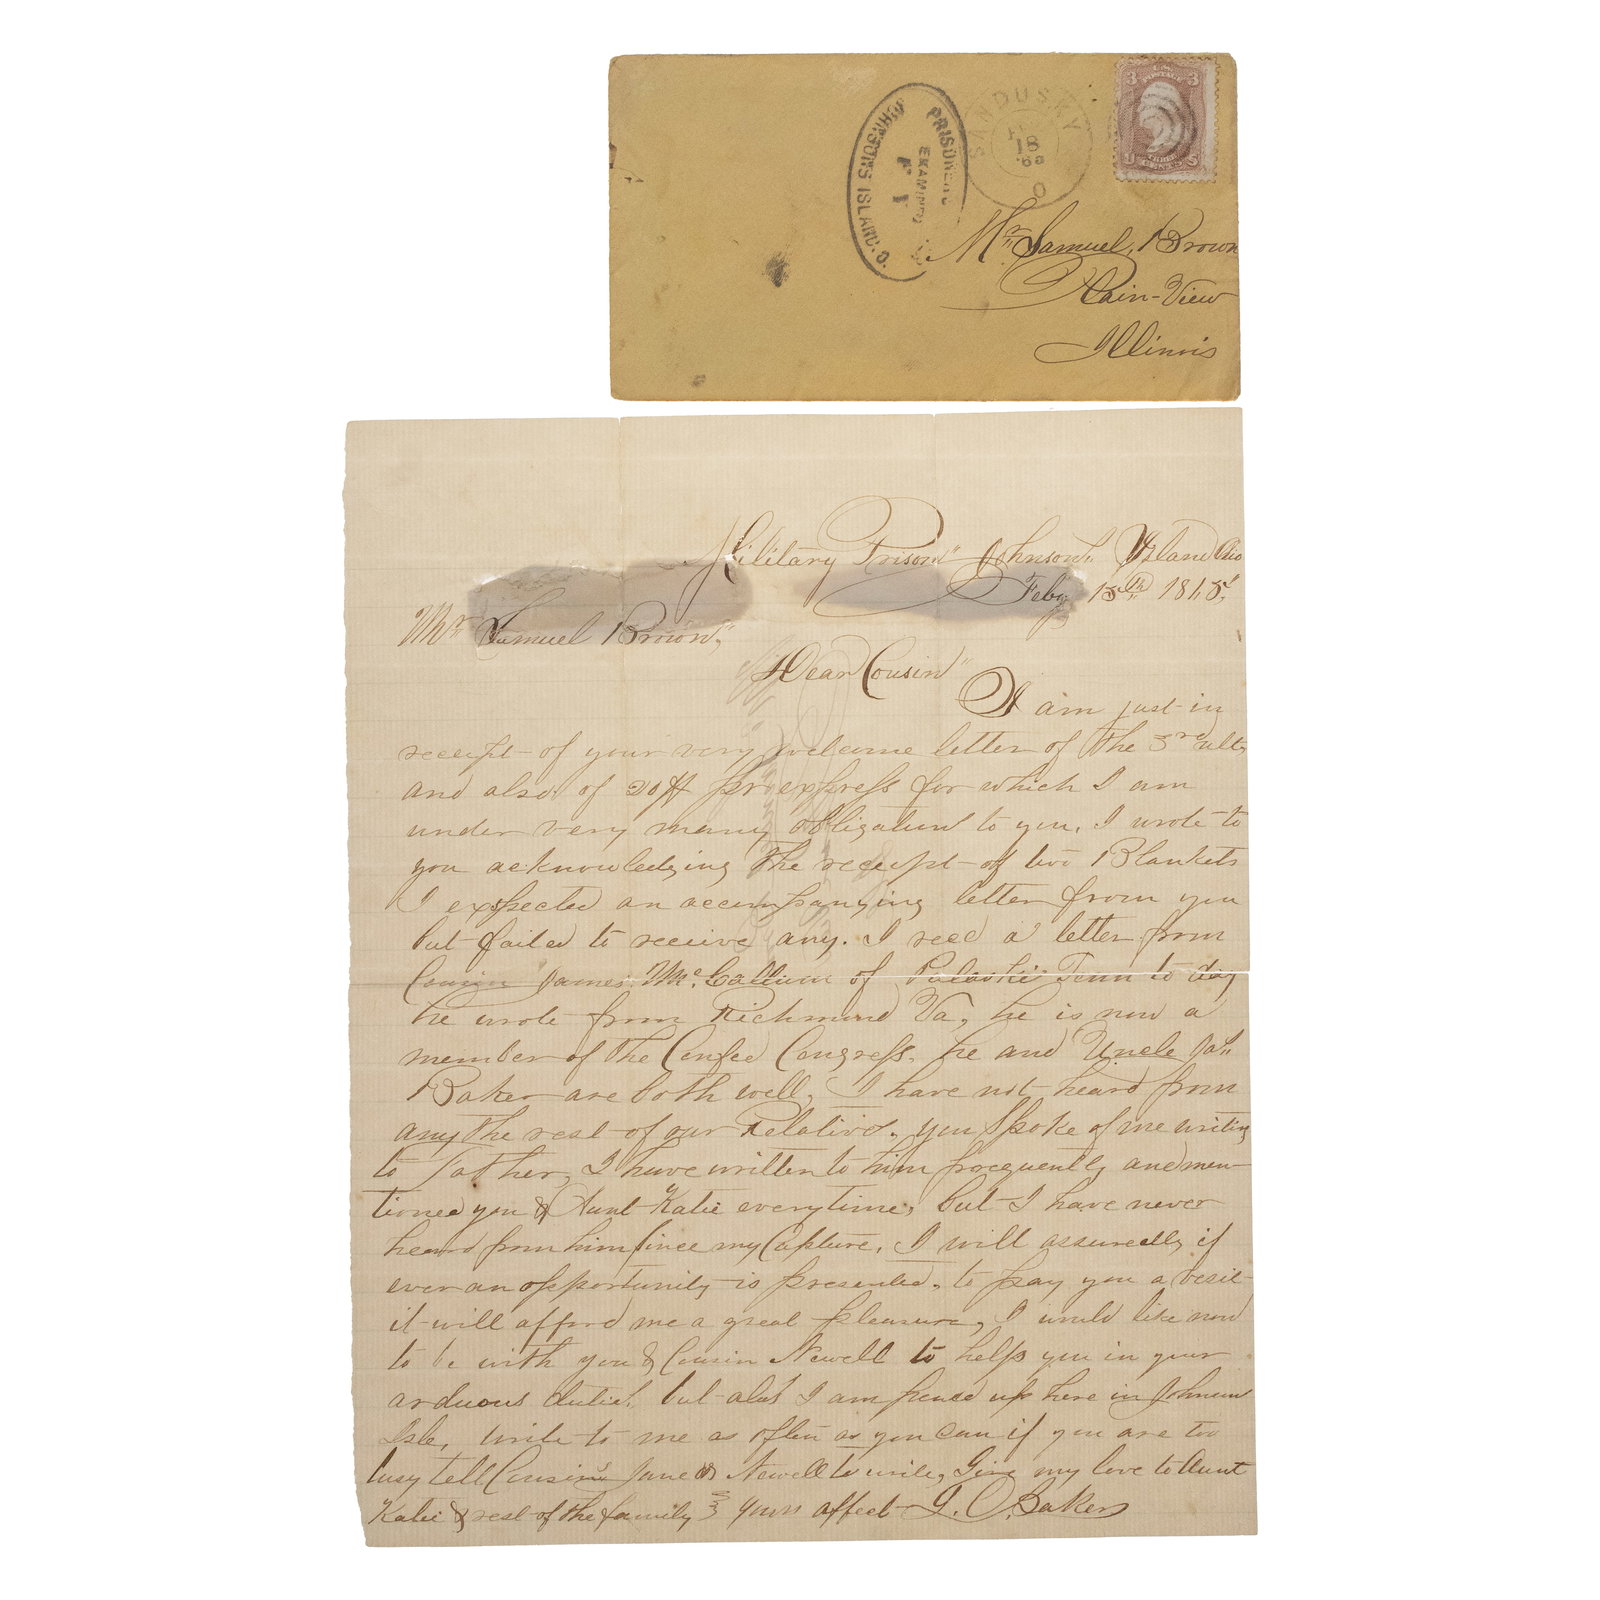 3 3
U.S. POSTAGE
THREE
CENTS
U S
SANDUSKY
18
O
PRISONERS
EXAMINED
JOHNSONS ISLAND. O.
Mr. Samuel, Brown
Plain-View
Illinois
Military Prison" Johnson,, Island Ohio
Feby 15th 1865,
Mr Samuel Brown,"
Dear Cousin"
I am just in
receipt of your very welcome letter of the 3rd ult,
and also of 20 pr express for which I am
under very many obligations to you, I wrote to
you acknowledging the receipt of two Blankets
I expected an accompanying letter from you
but failed to receive any. I recd a letter from
Cousin James McCallum of Pulaski Tenn to day
he wrote from Richmond Va, he is now a
member of the Confed Congress. he and Uncle
Baker are both well, I have not heard from
any the rest of our Relatives. you Spoke of me writing
to Father, I have written to him frequently and men-
tioned you & Aunt Katie everytime, but I have never
heard from him Since my Capture, I will assuredly if
ever an opportunity is presented, to pay you a visit
it will afford me a great pleasure, I would like now
to be with you & Cousin Newell to help you in your
arduous duties, but alas I am pened up here in Johnson
Isle, write to me as often as you can if you are too
busy tell Cousins Jane & Newell to write, Give my love to Aunt
Katie & rest of the family Yours affect J. C. Baker